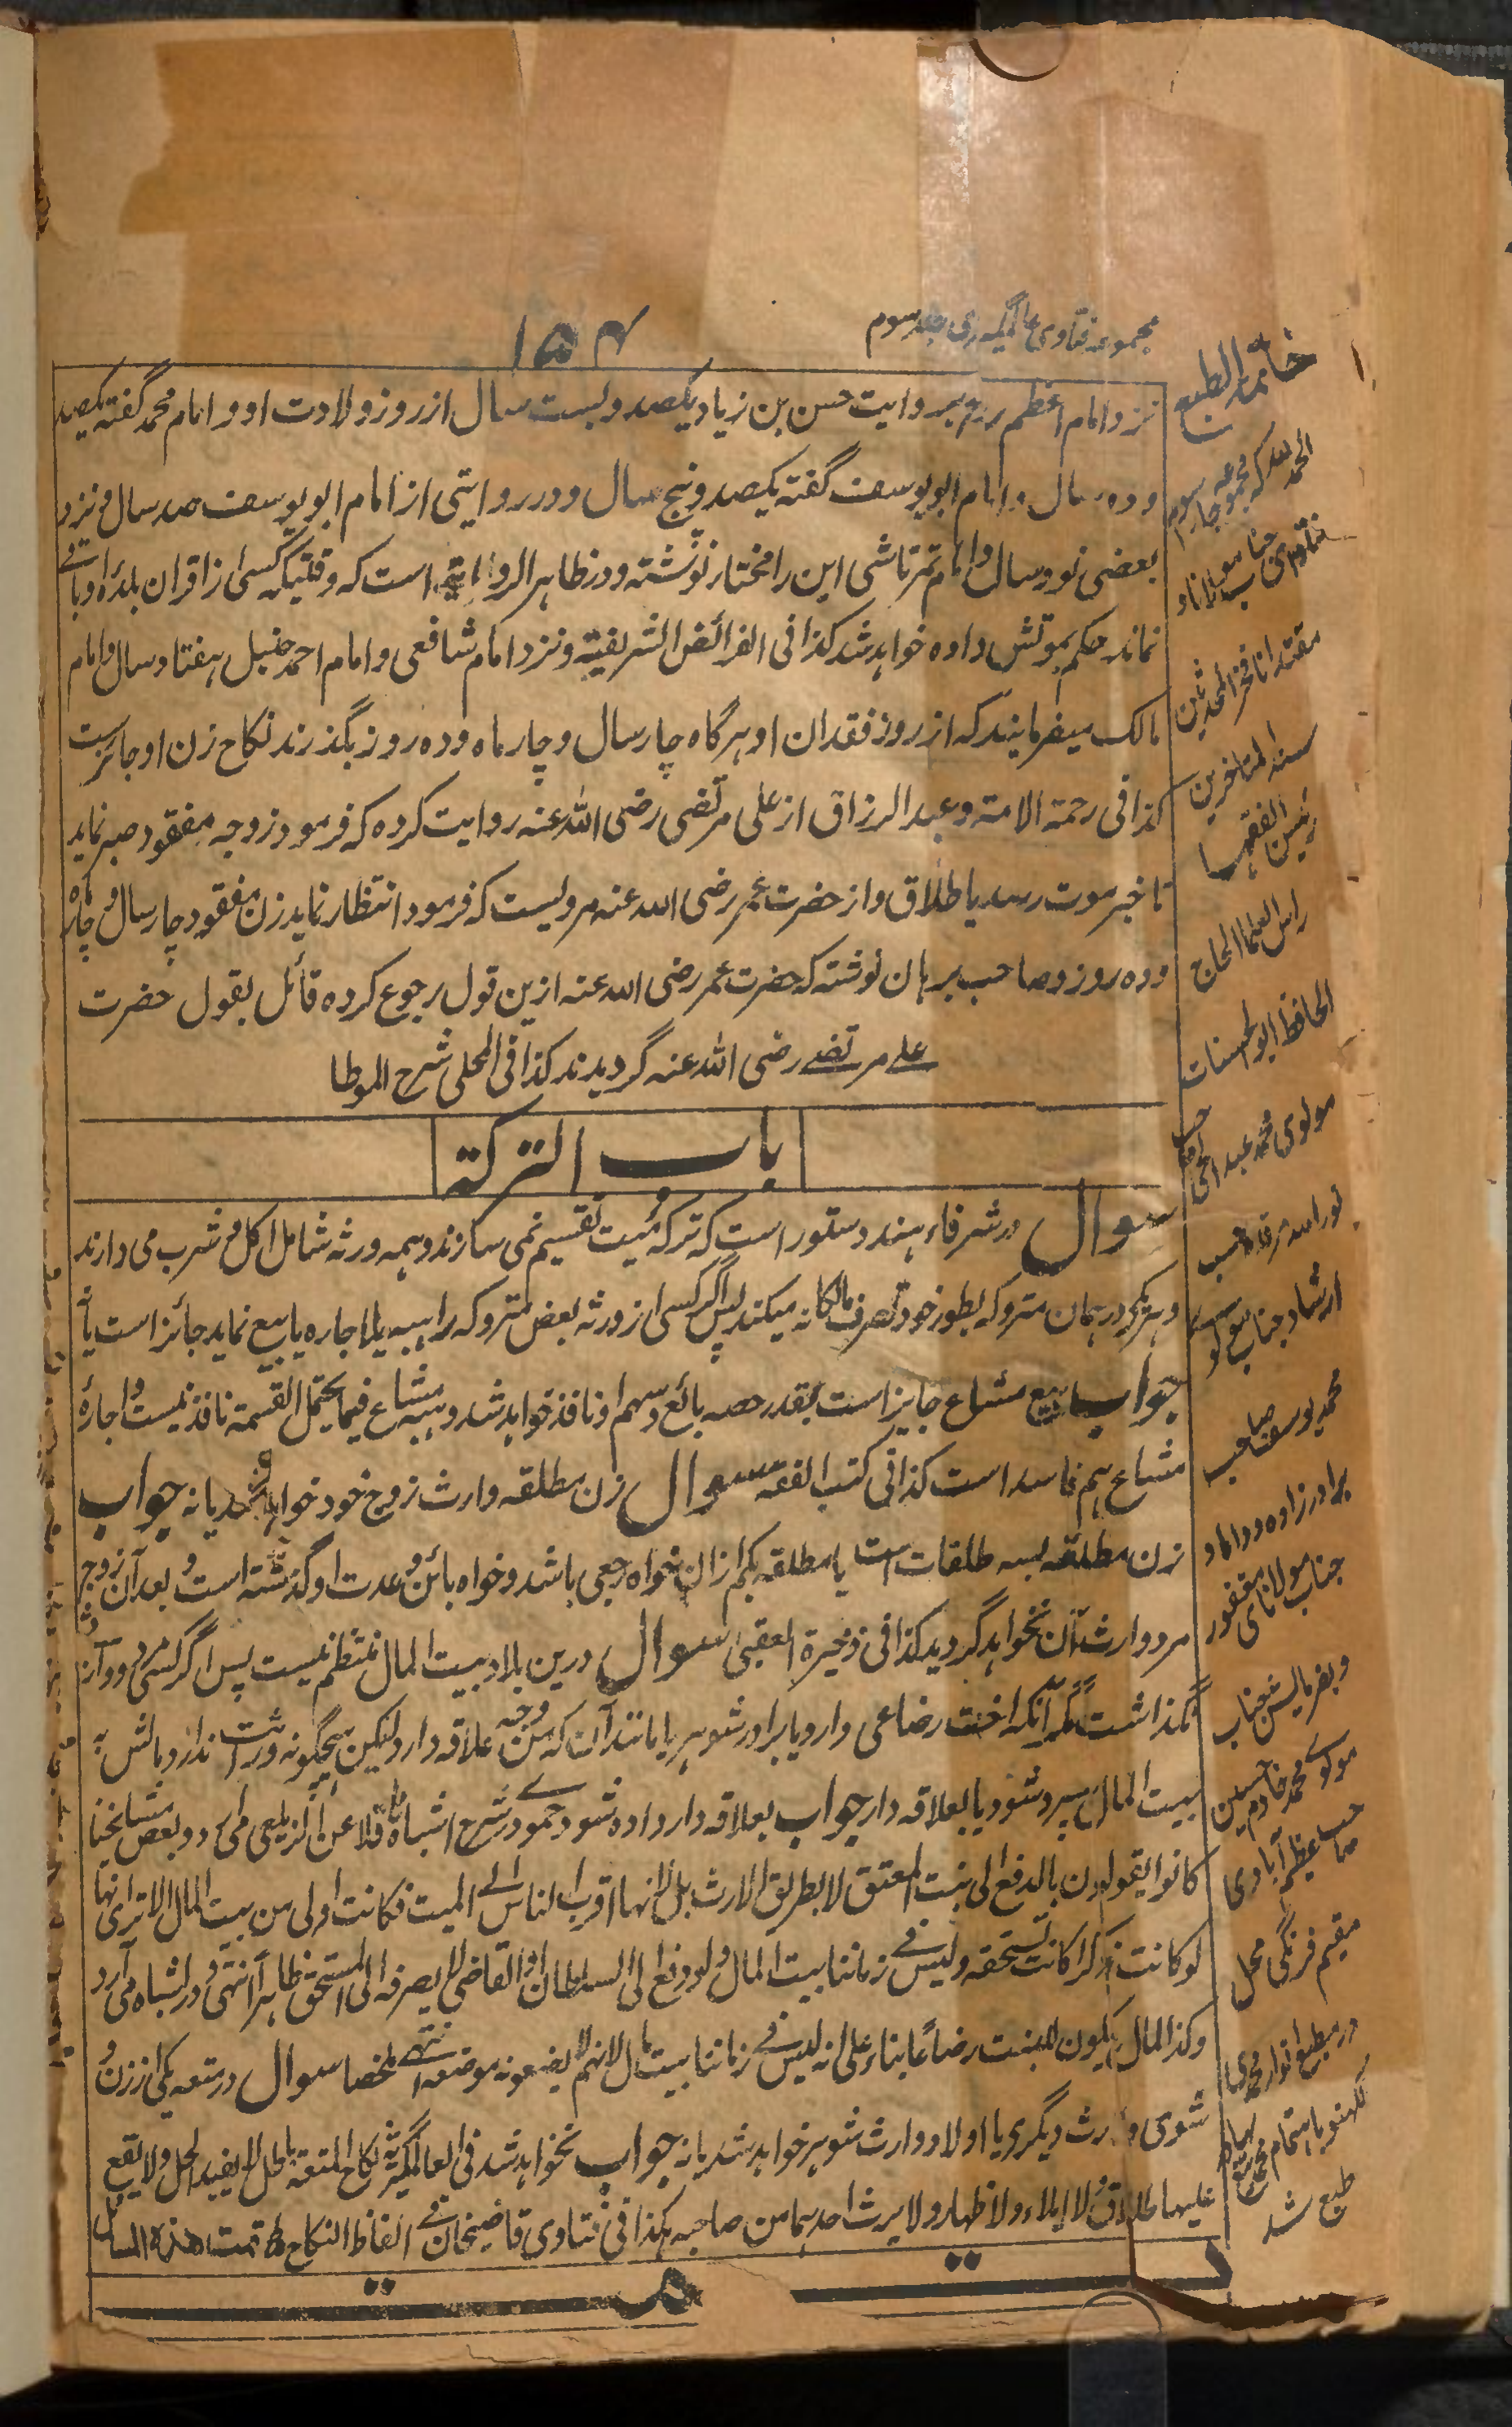 ۱۵۴
نزد امام اعظم رح بروایت حسن بن زیاد یکصد وبست سال از روز ولادت او و امام محمد گفته یکصد
وده سال و امام ابو یوسف گفته یکصد وپنج سال ودر روایتی از امام ابو یوسف صد سال ونزد
بعضی نود سال وامام تمرتاشی این را مختار نوشته ودر ظاهر الروایة است که وقتیکه کسی از اقران بلده او باقی
نماند حکم بموتش داده خواهد شد کذا فی الفرائض الشریفیة ونزد امام شافعی و امام احمد حنبل هفتاد سال وامام
مالک میفرمایند که از روز فقدان او هرگاه چار سال و چار ماه وده روز بگذرند نکاح زن او جائزست
کذا فی رحمة الامة وعبد الرزاق از علی مرتضی رضی الله عنه روایت کرده که فرمود زوجه مفقود صبر نماید
تا خبر موت رسد یا طلاق واز حضرت عمر رضی الله عنه مرویست که فرمود انتظار نماید زن مفقود چار سال و چار ماه
وده روز وصاحب برهان نوشته که حضرت عمر رضی الله عنه ازین قول رجوع کرده قائل بقول حضرت
علے مرتضے رضی الله عنه گردیدند کذا فی المحلی شرح الموطا
باب الترکة
سوال در شرفاء هند دستور است که ترکه میت تقسیم نمی سازند وهمه ورثه شامل اکل و شرب می دارند
وهریکی در همان متروکه بطور خود تصرف مالکانه میکند پس اگر کسی از ورثه بعض متروکه را هبه یا اجاره یا بیع نماید جائز است یا نه
جواب بیع مشاع جایز است بقدر حصه بائع وسهم او نافذ خواهد شد وهبه مشاع فیما یحتمل القسمة نافذ نیست و اجارهٔ
مشاع هم فاسد است کذا فی کتب الفقه سوال زن مطلقه وارث زوج خود خواهد شد یا نه جواب
زن مطلقه بسه طلقات است یا مطلقه بکم ازان خواه رجعی باشد وخواه بائن وعدت او گذشته است و بعد آن زوج
مرد وارث آن نخواهد گردید کذا فی ذخیرة العقبی سوال درین بلاد بیت المال منتظم نیست پس اگر کسی مرد و وارث
نگذاشت مگر آنکه اخت رضاعی دارد یا برادر شوهر یا مانند آن که من وجه علاقه دارد لیکن هیچگونه وراثت ندارد مالش به
بیت المال سپرد شود یا بعلاقه دار جواب بعلاقه دار داده شود حموے در شرح اشباه ناقلا عن الزیلعی می آرد وبعض مشایخنا
کانوا یقولون بالدفع الی بنت المعتق لا بطریق الارث بل لانها اقرب الناس الے المیت فکانت اولی من بیت المال الا تری انها
لو کانت ذکرا کانت تستحقه ولیس فے زماننا بیت المال ولو دفع الی السلطان او القاضی لا یصرفه الی المستحق ظاهرا انتهی و در اشباه می آرد
وکذا المال یکون للبنت رضاعا بناء علی انه لیس فے زماننا بیت مال لانهم لا یضعونه موضعه انتهے ملخصا سوال در متعه یکی از زن و
شوی وارث دیگری یا اولاد وارث شوهر خواهد شد یا نه جواب نخواهد شد فی العالمگیریة نکاح المتعة باطل لا یفید الحل ولا یقع
علیها طلاق ولا ایلاء ولا ظهار ولا یرث احدهما من صاحبه هکذا فی فتاوی قاضیخان فے الفاظ النکاح تمت هذه المسائل
تمت
خاتمة الطبع
الحمد لله که مجموعه جلد سوم
فتاوی جناب مولانا و
مقتدانا فخر المحدثین
سند المتاخرین
رئیس الفقها
راس العلما الحاج
الحافظ ابو الحسنات
مولوی محمد عبد الحی صاحب
نور الله مرقده حسب
ارشاد جناب مولوی
محمد یوسف صاحب
برادر زاده و داماد
جناب مولانای مغفور
و بفرمایش جناب
مولوے محمد خادم حسین
صاحب عظیم آبادی
مقیم فرنگی محل
در مطبع انوار محمدی
لکهنو باهتمام محمد
طبع شد